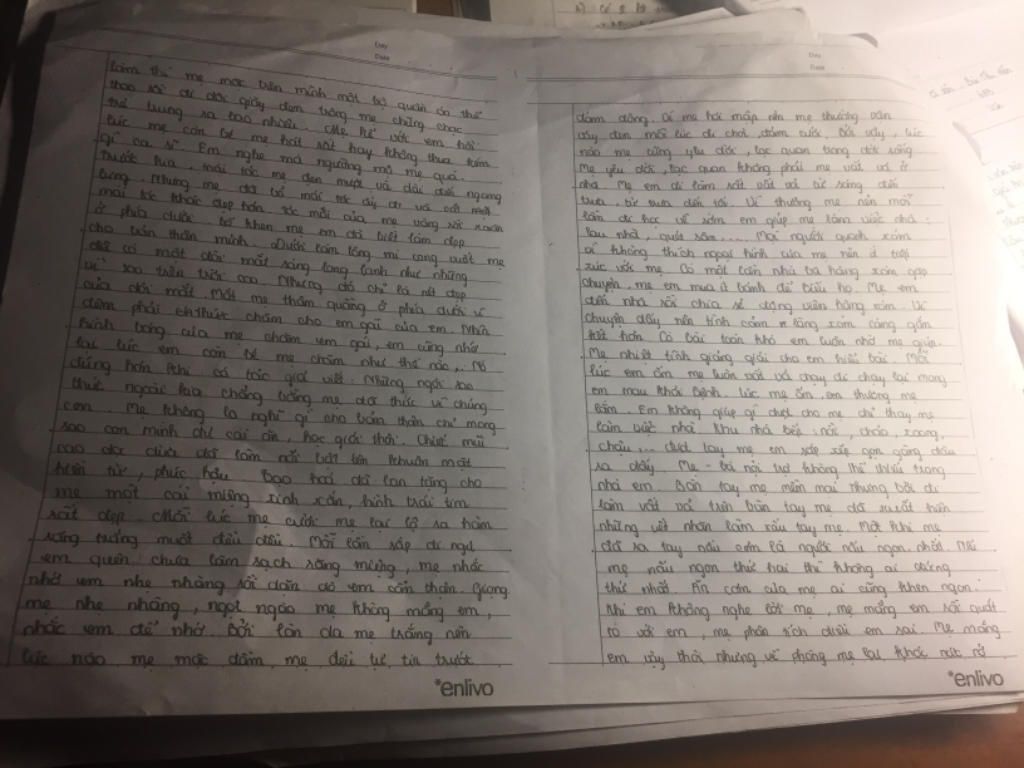 Day
Date
làm thì mẹ mặc trên mình một bộ quần áo thể
thao rồi đi đôi giày đen trông mẹ chững chạc
trẻ trung ra bao nhiêu. Mẹ kể với em hồi
lúc mẹ còn bé mẹ hát rất hay không thua kém
gì ca sĩ. Em nghe mà ngưỡng mộ mẹ quá.
Trước kia, mái tóc mẹ đen mượt và dài đến ngang
lưng. Nhưng mẹ đã bỏ mái tóc ấy đi và cắt một
mái tóc khác đẹp hơn tóc mái của mẹ vàng rồi xoăn
ở phía dưới. bố khen mẹ em đã biết làm đẹp
cho bản thân mình. Dưới làn lông mi cong vuốt mẹ
đã có một đôi mắt sáng long lanh như những
vì sao trên trời cao. Nhưng đó chỉ là nét đẹp
của đôi mắt. Mắt mẹ thâm quầng ở phía dưới vì
đêm phải thức chăm cho em gái của em. Nhìn
hình bóng của mẹ chăm em gái, em cũng nhớ
lại lúc em còn bé mẹ chăm như thế nào,.. Nó
đúng hơn khi có tác giả viết. Những ngôi sao
thức ngoài kia chẳng bằng mẹ đã thức vì chúng
con. Mẹ không lo nghĩ gì cho bản thân chỉ mong
sao con mình chỉ cái ăn, học giỏi thôi. Chiếc mũi
cao dọc dừa đã làm nổi bật lên khuôn mặt
hiền từ, phúc hậu. Tạo hoá đã ban tặng cho
mẹ một cái miệng xinh xắn, hình trái tim
rất đẹp. Mỗi lúc mẹ cười mẹ lại lộ ra hàm
răng trắng muốt đều đều. Mỗi lần sắp đi ngủ
em quên chưa làm sạch răng miệng, mẹ nhắc
nhở em nhẹ nhàng rồi dặn dò em cẩn thận. Giọng
mẹ nhẹ nhàng, ngọt ngào mẹ không mắng em,
nhắc em để nhớ. Bởi làn da mẹ trắng nên
lúc nào mẹ mặc đầm, mẹ đều tự tin trước
*enlivo
Day
Date
đám đông. Dì mẹ hơi mập nên mẹ thường vận
váy đen mỗi lúc đi chơi, đám cưới. Bởi vậy, lúc
nào mẹ cũng yêu đời, lạc quan trong đời sống
Mẹ yêu đời, lạc quan không phải mẹ vất vả ở
nhà. Mẹ em đi làm rất vất vả từ sáng đến
trưa, từ trưa đến tối. Vì thương mẹ nên mỗi
lần đi học về sớm em giúp mẹ làm việc nhà:
lau nhà, quét sân,.... Mọi người quanh xóm
ai không thích ngoại hình của mẹ nên ít tiếp
xúc với mẹ. Có một lần nhà bà hàng xóm gặp
chuyện, mẹ em mua ít bánh để biếu họ. Mẹ em
đến nhà rồi chia sẻ động viên hàng xóm. Vì
chuyện đấy nên tình cảm làng xóm càng gắn
kết hơn. Có bài toán khó em luôn nhờ mẹ giúp.
Mẹ nhiệt tình giảng giải cho em hiểu bài. Mỗi
lúc em ốm mẹ luôn vất vả chạy đi chạy lại mong
em mau khỏi bệnh. Lúc mẹ ốm, em thương mẹ
lắm. Em không giúp gì được cho mẹ chỉ thay mẹ
làm việc nhà. Khu nhà bếp: nồi, chảo, xoong,
chậu,... dưới tay mẹ em sắp xếp gọn gàng đâu
ra đấy. Mẹ - bà nội trợ không thể thiếu trong
nhà em. Bàn tay mẹ mềm mại nhưng bởi đi
làm vất vả trên bàn tay mẹ đã xuất hiện
những vết nhăn làm xấu tay mẹ. Một khi mẹ
đã ra tay nấu cơm là người nấu ngon nhất. Nếu
mẹ nấu ngon thứ hai thì không ai đứng
thứ nhất. Ăn cơm của mẹ ai cũng khen ngon.
Khi em không nghe lời mẹ, mẹ mắng em rồi quát
to với em, mẹ phân tích điều em sai. Mẹ mắng
em vậy thôi nhưng về phòng mẹ lại khóc nức nở
*enlivo